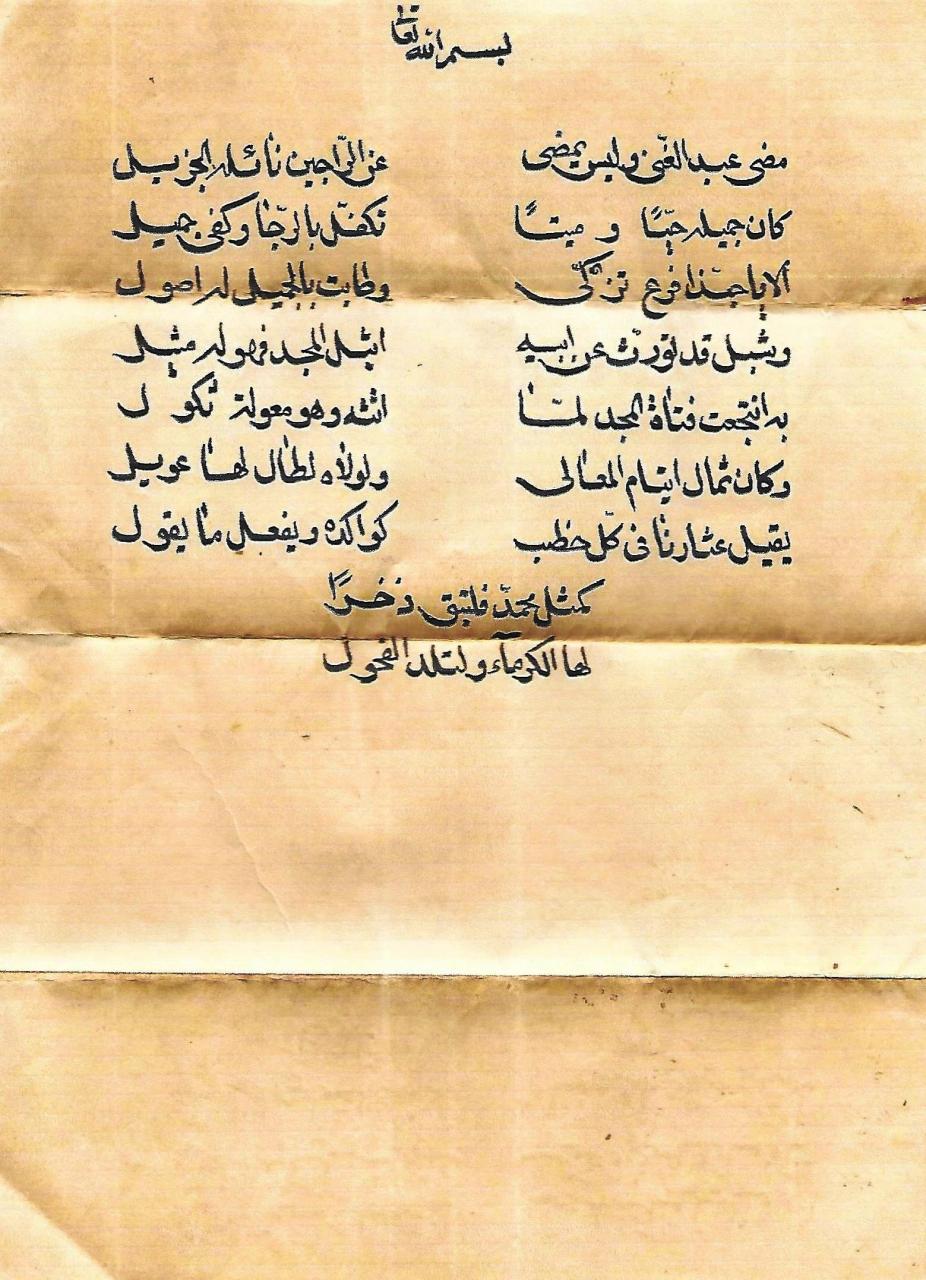 بسم الله تعالى
مضى عبد الغني وليس يمضى عن الراجين نائله الجزيل
كان جميله حيًّا و ميتًا تكفّل بالرّجا وكفى جميل
ألا يا حبّذا فرع تزكّى وطابت بالجميل له اصول
وشبل قد تورّث عن ابيه اثيل المجد فهو له مثيل
به انتجعت فتاة المجد لمّا اتته وهو معولة ثكول
وكان ثمال ايتام المعالى ولولاه لطال لها عويل
يقيل عثارنا فى كلّ خطب كوالده ويفعل ما يقول
كمثل محمّد فلتبق ذخرًا
لها الكرمآء ولتلد الفحول